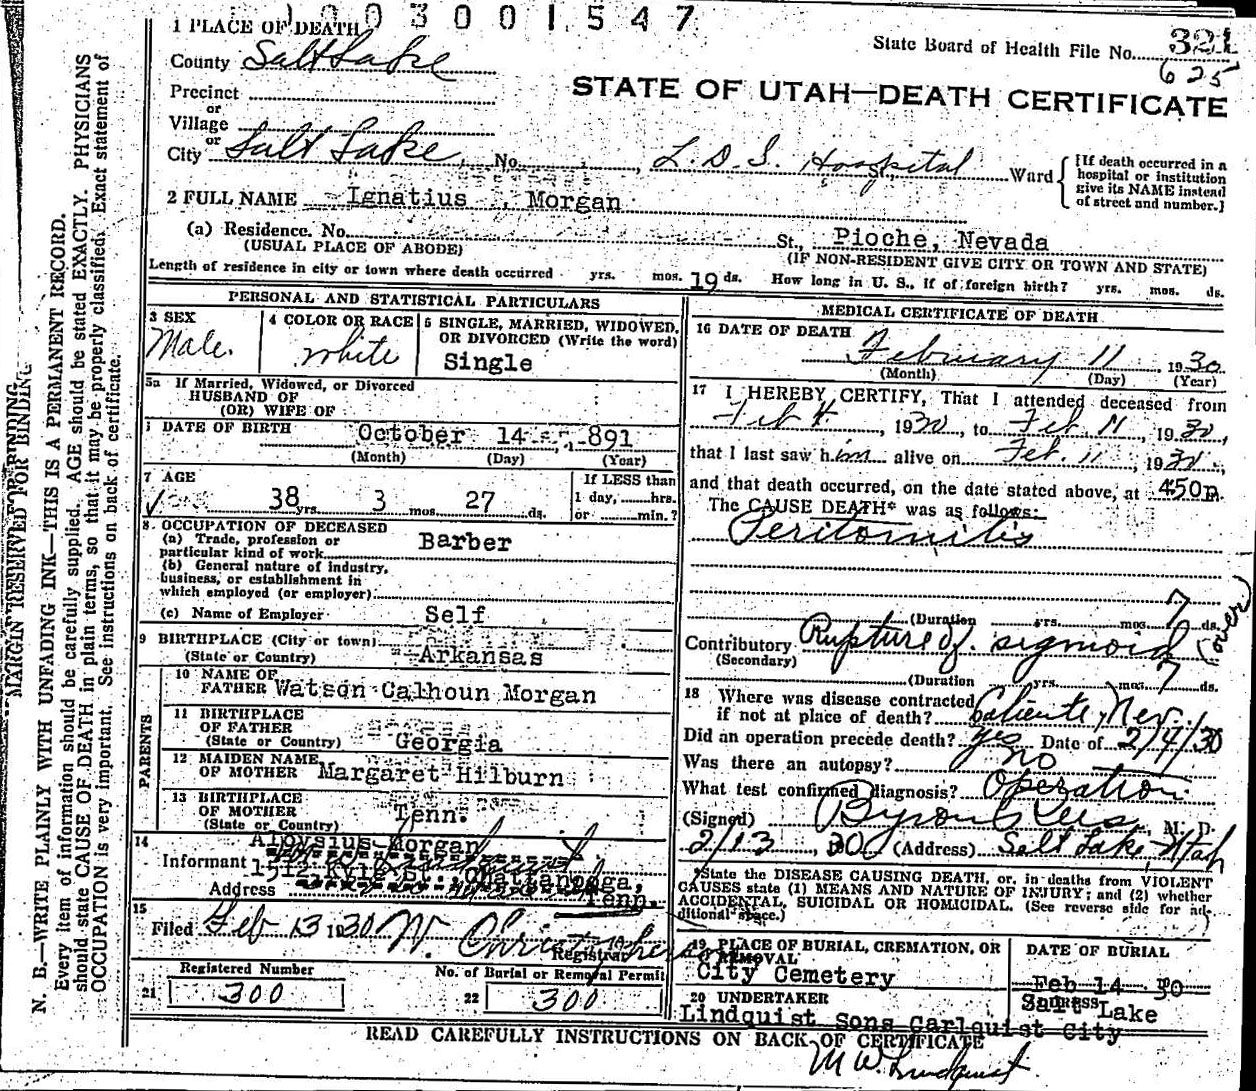 1003001547
State Board of Health File No. 321
625
STATE OF UTAH—DEATH CERTIFICATE
1 PLACE OF DEATH
County Salt Lake
Precinct
or
Village
or
City Salt Lake, No. L.D.S. Hospital St., Ward
[If death occurred in a hospital or institution give its NAME instead of street and number.]
2 FULL NAME Ignatius , Morgan
(a) Residence. No. St., Pioche, Nevada
(USUAL PLACE OF ABODE) (IF NON-RESIDENT GIVE CITY OR TOWN AND STATE)
Length of residence in city or town where death occurred yrs. mos. 19 ds. How long in U. S., if of foreign birth? yrs. mos. ds.
PERSONAL AND STATISTICAL PARTICULARS
3 SEX
Male.
4 COLOR OR RACE
white
5 SINGLE, MARRIED, WIDOWED, OR DIVORCED (Write the word)
Single
5a If Married, Widowed, or Divorced
HUSBAND OF
(OR) WIFE OF
DATE OF BIRTH October 14 , 891
(Month) (Day) (Year)
7 AGE
38 yrs. 3 mos. 27 ds.
If LESS than
1 day, hrs.
or min.?
8 OCCUPATION OF DECEASED
(a) Trade, profession or
particular kind of work Barber
(b) General nature of industry,
business, or establishment in
which employed (or employer)
(c) Name of Employer Self
9 BIRTHPLACE (City or town)
(State or Country) Arkansas
PARENTS
10 NAME OF
FATHER Watson Calhoun Morgan
11 BIRTHPLACE
OF FATHER
(State or Country) Georgia
12 MAIDEN NAME
OF MOTHER Margaret Hilburn
13 BIRTHPLACE
OF MOTHER
(State or Country) Tenn.
14
Informant Aloysius Morgan
Address 1512 Kyle St. Chattanooga,
Tenn.
15
Filed Feb 13 1930 W. Christopherson
Registrar
Registered Number
21 300
No. of Burial or Removal Permit
22 300
MEDICAL CERTIFICATE OF DEATH
16 DATE OF DEATH
February 11, 1930
(Month) (Day) (Year)
17 I HEREBY CERTIFY, That I attended deceased from
Feb 4, 1930, to Feb 11, 1930,
that I last saw him alive on Feb. 11, 1930,
and that death occurred, on the date stated above, at 450p.
The CAUSE DEATH* was as follows:
Peritonitis
(Duration yrs. mos. 7 ds.
Contributory Rupture of sigmoid (over)
(Secondary)
(Duration yrs. mos. 7 ds.
18 Where was disease contracted
if not at place of death? Caliente, Nev.
Did an operation precede death? yes Date of 2/4/30
Was there an autopsy? no
What test confirmed diagnosis? Operation
(Signed) Byron Rees, M. D.
2/13, 30 (Address) Salt Lake Utah
*State the DISEASE CAUSING DEATH, or, in deaths from VIOLENT
CAUSES state (1) MEANS AND NATURE OF INJURY; and (2) whether
ACCIDENTAL, SUICIDAL OR HOMICIDAL. (See reverse side for ad-
ditional space.)
19 PLACE OF BURIAL, CREMATION, OR
REMOVAL
City Cemetery
DATE OF BURIAL
Feb 14 30
20 UNDERTAKER
Lindquist Sons Carlquist
ADDRESS
Salt Lake
City
READ CAREFULLY INSTRUCTIONS ON BACK OF CERTIFICATE
M W Lindquist
MARGIN RESERVED FOR BINDING
N. B.—WRITE PLAINLY WITH UNFADING INK—THIS IS A PERMANENT RECORD.
Every item of information should be carefully supplied. AGE should be stated EXACTLY. PHYSICIANS
should state CAUSE OF DEATH in plain terms, so that it may be properly classified. Exact statement of
OCCUPATION is very important. See instructions on back of certificate.